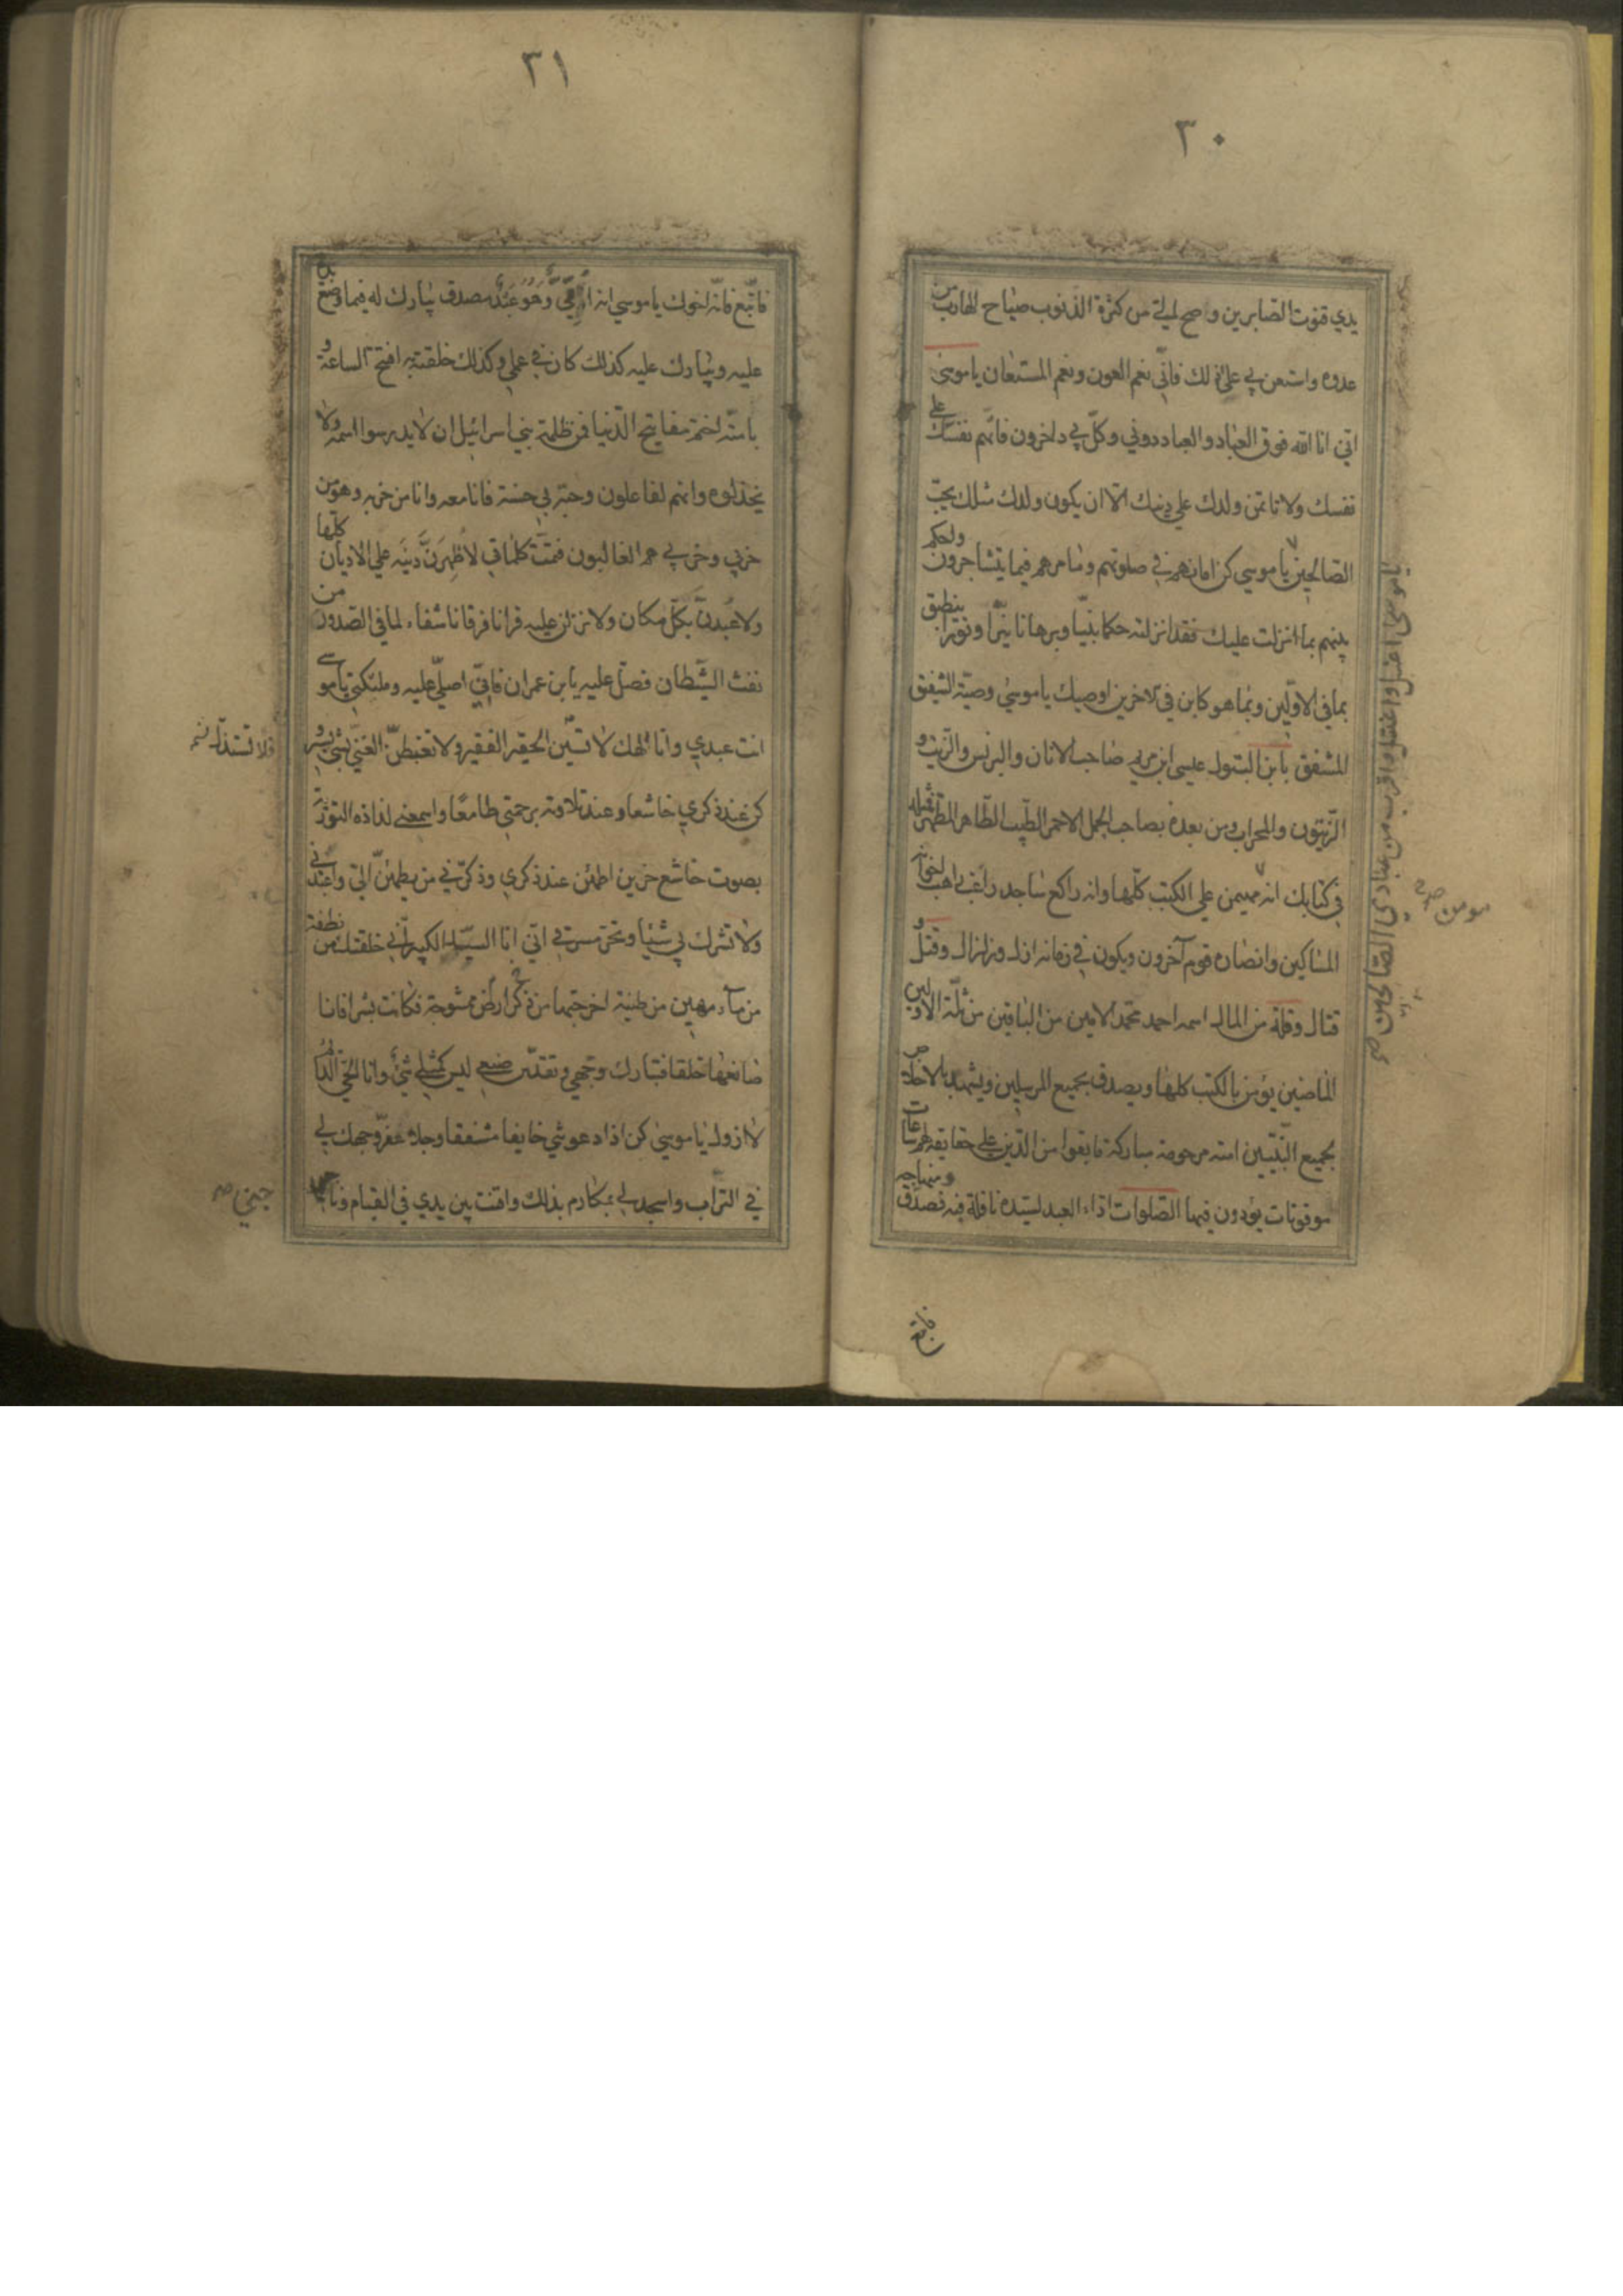 ٣٠
يدي قنوت الصابرين وصح لي من كثرة الذنوب صياح الهارب من
عدوه واستعن بي على ذلك فاني نعم العون ونعم المستعان يا موسى
اني انا الله فوق العباد والعباد دوني وكل لي داخرون فاتهم نفسك على
نفسك ولا تاتمن ولدك على دينك الا ان يكون ولدك مثلك يحب
الصالحين يا موسى كن امامهم في صلوتهم وامامهم فيما يتشاجرون واحكم
بينهم بما انزلت عليك فقد انزلته حكما بينا وبرهانا نيرا ونورا ينطق
بما في الاولين وبما هو كاين في الاخرين اوصيك يا موسى وصية الشفيق
المشفق بابن البتول عيسى ابن مريم صاحب الاتان والبرنس والزيت و
الزيتون والمحراب ومن بعده بصاحب الجمل الاحمر الطيب الطاهر المطهر فمثله
في كتابك انه مهيمن على الكتب كلها وانه راكع ساجد راغب راهب اخوانه
المساكين وانصاره قوم آخرون ويكون في زمانه ازل وزلزال وقتل و
قتال وقلة من المال اسمه احمد محمد الامين من الباقين من ثلة الاولين
الماضين يؤمن بالكتب كلها ويصدق بجميع المرسلين ويشهد بالاخلاص
بجميع النبيين امته مرحومة مباركة ما بقوا من الدين على حقايقه لهم ساعات
موقوتات يؤدون فيها الصلوات اداء العبد لسيده نافلة فبه فصدق ومنهاجه
مومن
فاتبع
٣١
فاتبع فانه اخوك يا موسى انه امي وهو عبد صدق يبارك له فيما وضع يده
عليه ويبارك عليه كذلك كان في علمي وكذلك خلقته به افتح الساعة و
بامته اختم مفاتيح الدنيا فمر ظلمة بني اسرائيل ان لا يدرسوا اسمه ولا
يخذلوه وانهم لفاعلون وحبه لي حسنة فانا معه وانا من حزبه وهو من
حزبي وحزبي هم الغالبون فتمت كلماتي لاظهرن دينه على الاديان كلها
ولاعبدن بكل مكان ولانزلن عليه قرانا فرقانا شفاء لما في الصدور من
نفث الشيطان فصل عليه يا بن عمران فاني اصلي عليه وملئكتي يا موسى
انت عبدي وانا الهك لا تستذل الحقير الفقير ولا تغبطن الغني بشئ يسير و
كن عند ذكري خاشعا وعند تلاوته برحمتي طامعا واسمعني لذاذه التورية
بصوت خاشع حزين اطمئن عند ذكري وذكر بي من يطمئن الي واعبدني
ولا تشرك بي شيئا وتحر مسرتي اني انا السيد الكبير اني خلقتك من نطفة
من ماء مهين من طينة اخرجتها من ارض ممشوجة فكانت بشرا فانا
صانعها خلقا فتبارك وجهي وتقدس صنعي ليس كمثلي شئ وانا الحي الدائم
لا ازول يا موسى كن اذا دعوتني خايفا مشفقا وجلا عفر وجهك لي
في التراب واسجد لي بمكارم بدنك واقنت بين يدي في القيام وناجني